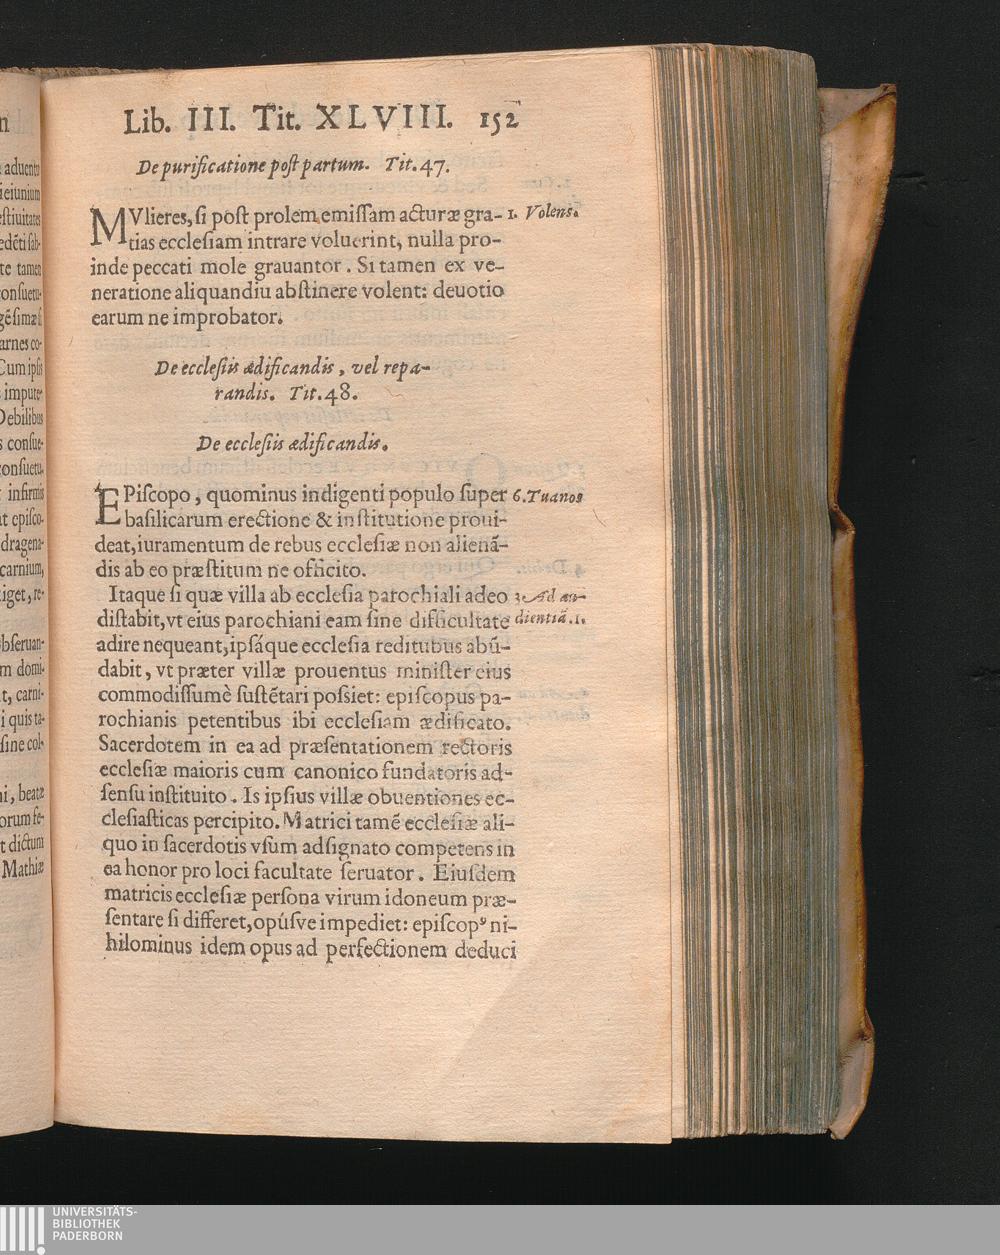 n
aduentu
ieiunium
eſtiuitates
edẽti ſab-
te tamen
onſuetu-
gẽſimæ ſi
arnes co-
Cum ipſis
impute-
Debilibus
s conſue-
onſuetu.
infirmis
at epiſco-
dragena-
carnium,
iget, re-
bſeruan-
m domi-
t, carni-
i quis ta-
ſine col-
ni, beatæ
orum fe-
t dictum
Mathiæ
Lib. III. Tit. XLVIII. 152
De purificatione poſt partum. Tit. 47.
MVlieres, ſi poſt prolem emiſſam acturæ gra- 1. Volens.
tias eccleſiam intrare voluerint, nulla pro-
inde peccati mole grauantor. Si tamen ex ve-
neratione aliquandiu abſtinere volent: deuotio
earum ne improbator.
De eccleſiis ædificandis, vel repa-
randis. Tit. 48.
De eccleſiis ædificandis.
EPiſcopo, quominus indigenti populo ſuper 6. Tuanos
baſilicarum erectione & inſtitutione proui-
deat, iuramentum de rebus eccleſiæ non alienã-
dis ab eo præſtitum ne officito.
Itaque ſi quæ villa ab eccleſia parochiali adeo 3. Ad au-
diſtabit, vt eius parochiani eam ſine difficultate dientiã. 1.
adire nequeant, ipſáque eccleſia reditubus abũ-
dabit, vt præter villæ prouentus miniſter eius
commodiſſumè ſuſtẽtari poſsiet: epiſcopus pa-
rochianis petentibus ibi eccleſiam ædificato.
Sacerdotem in ea ad præſentationem rectoris
eccleſiæ maioris cum canonico fundatoris ad-
ſenſu inſtituito. Is ipſius villæ obuentiones ec-
cleſiaſticas percipito. Matrici tamẽ eccleſiæ ali-
quo in ſacerdotis vſum adſignato competens in
ea honor pro loci facultate ſeruator. Eiuſdem
matricis eccleſiæ perſona virum idoneum præ-
ſentare ſi differet, opúſve impediet: epiſcopꝰ ni-
hilominus idem opus ad perfectionem deduci
UNIVERSITÄTS-
BIBLIOTHEK
PADERBORN